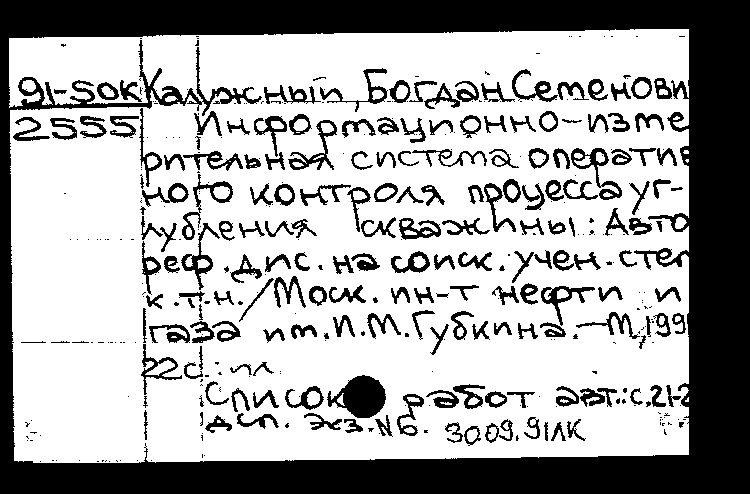 91-50К Калужный, Богдан Семенови
2555 Информационно-изме
рительная система оператив
ного контроля процесса уг-
лубления скважины: Авто
реф. дис. на соиск. учен. степ
к.т.н. / Моск. ин-т нефти и
газа им. И.М. Губкина. — М., 199
22 с.: ил.
Список работ авт.: с. 21-2
дсп. Экз. №6. 30.09.91ЛК